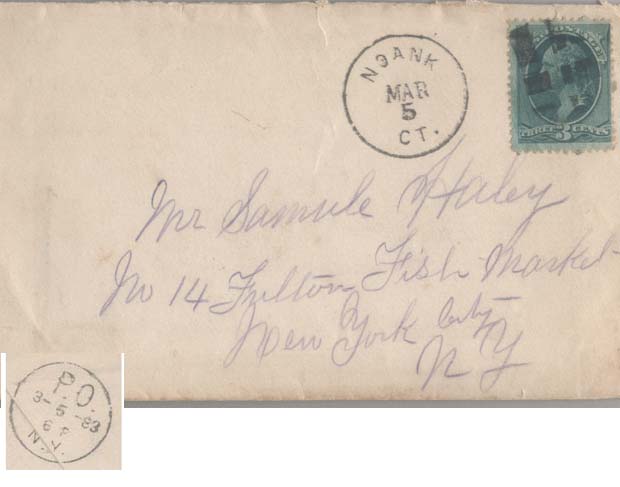 NOANK
MAR
5
CT.
POSTAGE
THREE 3 CENTS
Mr Samule Haley
No 14 Fulton Fish Market
New York City
N Y
P.O.
3-5-83
6 P
N.Y.